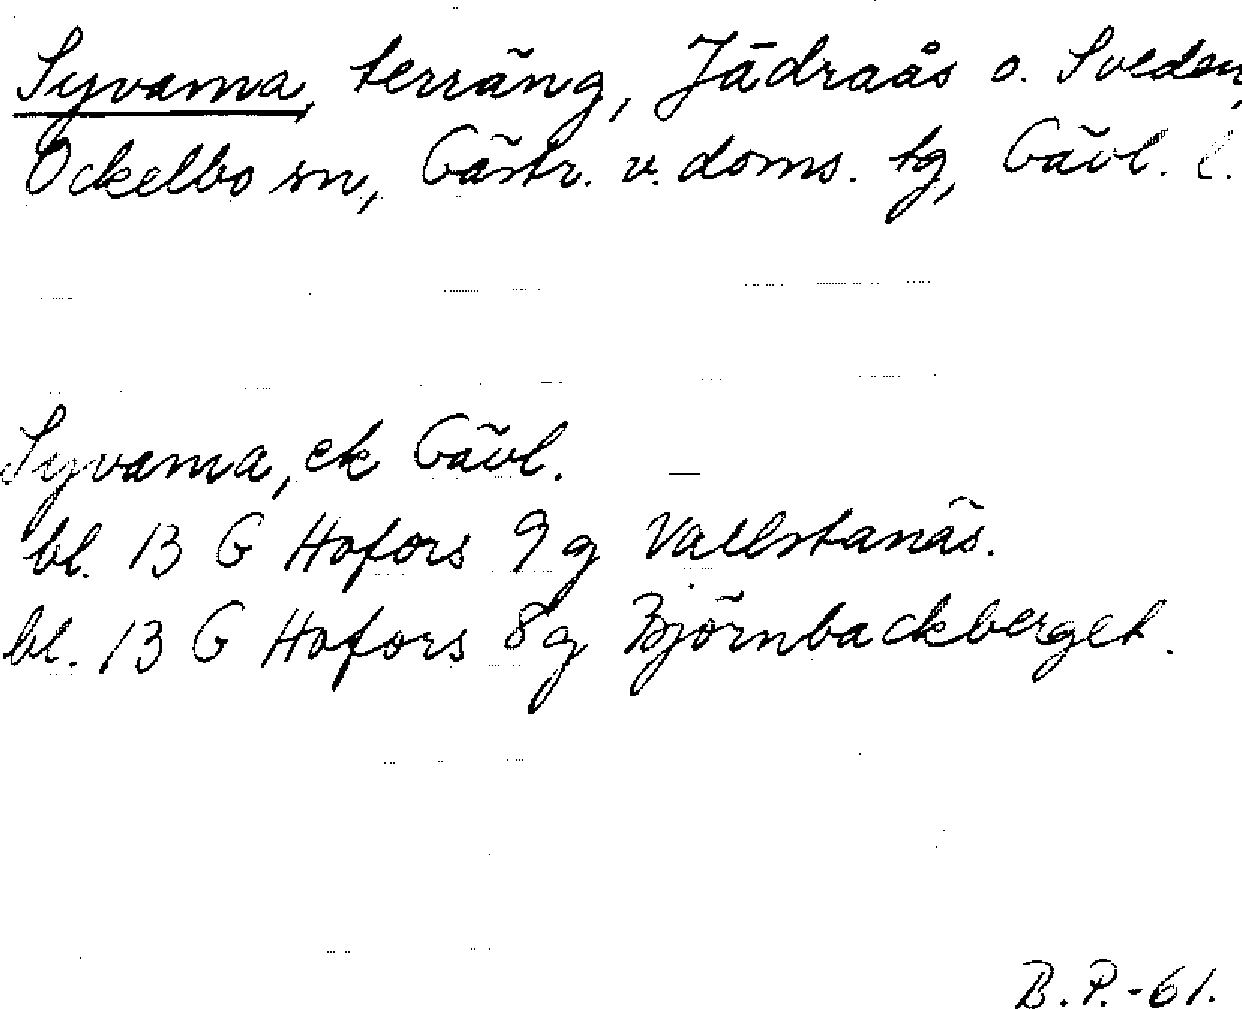 Syvarna, terräng, Jädraås o. Sveden,
Ockelbo sn, Gästr. v. doms. tg, Gävl. l.
Syvarna, ek Gävl. —
bl. 13 G Hofors 9g Vallstanäs.
bl. 13 G Hofors 8g Björnbackberget.
B.P.-61.